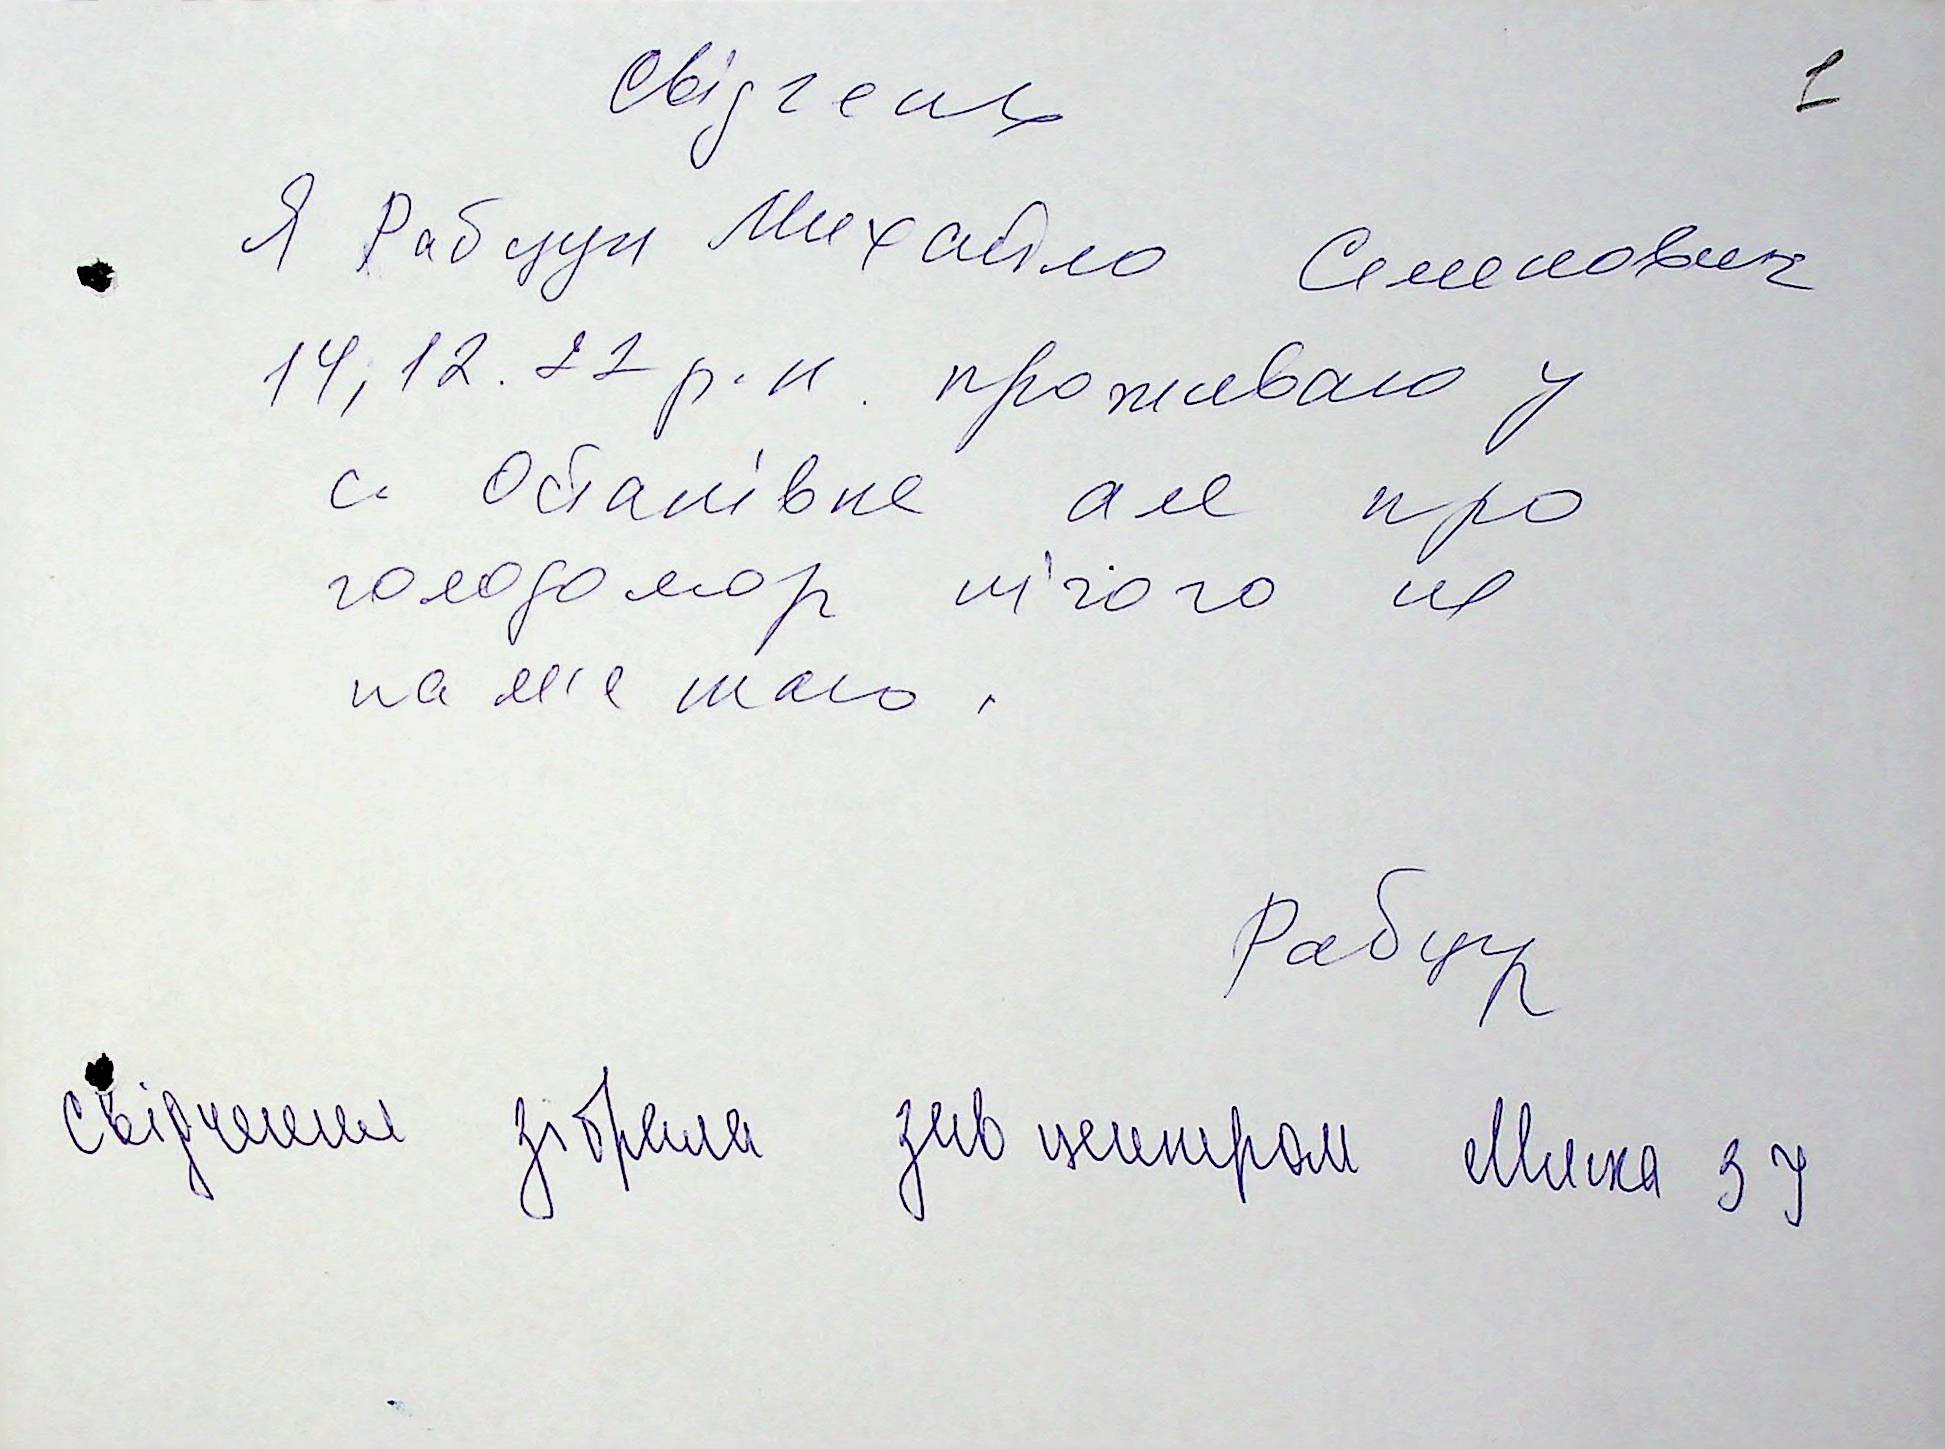 Свідчення
1
Я Рабцун Михайло Семенович
14, 12. 22 р. н. проживаю у
с. Остапівка але про
голодомор нічого не
пам'ятаю.
Рабцун
Свідчення зібрала зав центром Миска З У